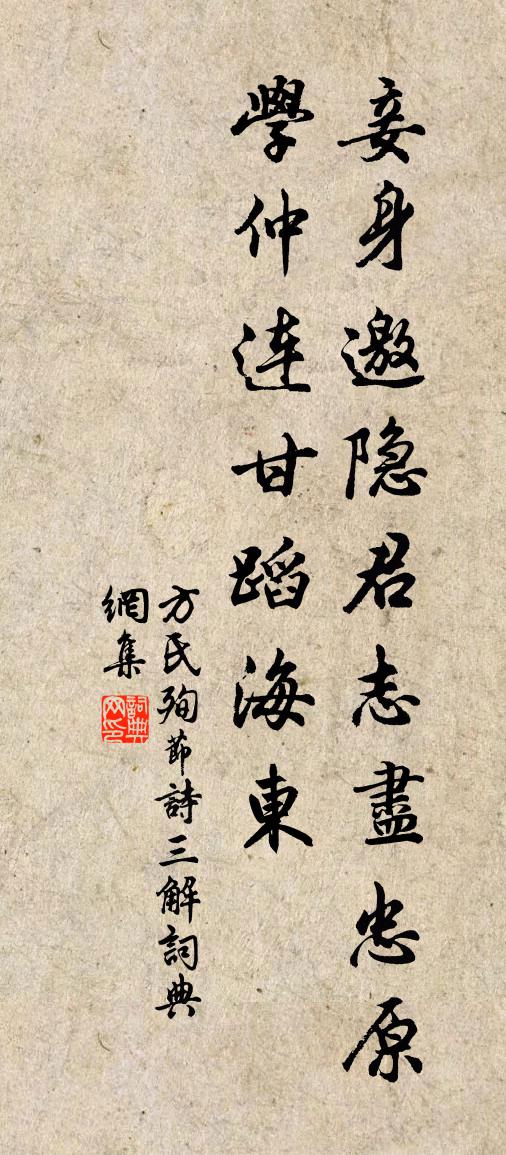 妾身邀隐君志盡忠原
學仲連甘蹈海東
方氏殉節詩三解詞典
網集
詞典
网印